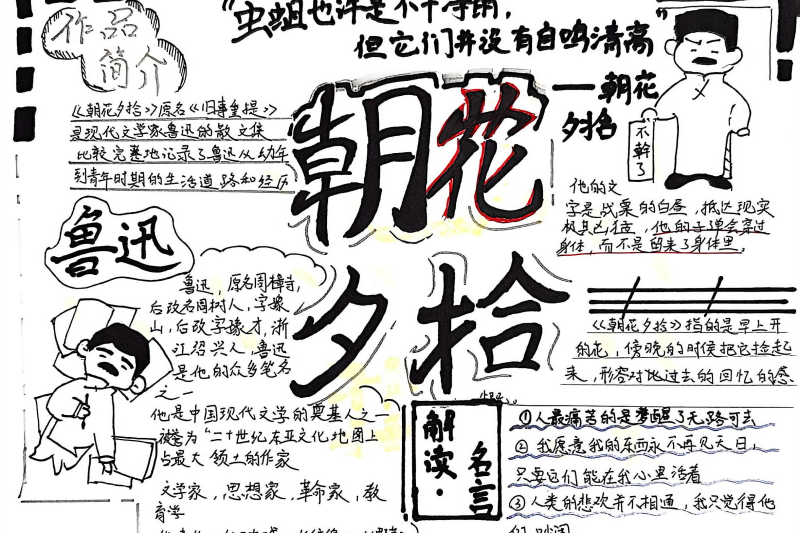 "虫蛆也许是不干净的,
但它们并没有自鸣清高"
——朝花
夕拾
作品
简介
《朝花夕拾》原名《旧事重提》
是现代文学家鲁迅的散文集
比较完整地记录了鲁迅从幼年
到青年时期的生活道路和经历
朝花
夕拾
不幹了
他的文
字是战栗的白昼,抵达现实
极其凶猛,他的子弹会穿过
身体,而不是留来了身体里。
鲁迅
鲁迅,原名周樟寿,
后改名周树人,字豫
山,后改字豫才,浙
江绍兴人,鲁迅
是他的众多笔名
之一
他是中国现代文学的奠基人之一
被誉为"二十世纪东亚文化地图上
占最大领土的作家
文学家,思想家,革命家,教
育学
《朝花夕拾》指的是早上开
的花,傍晚的时候把它捡起
来,形容对比过去的回忆的感
解读·
名言
①人最痛苦的是梦醒了无路可去
②我愿意我的东西永不再见天日,
只要它们能在我心里活着
③人类的悲欢并不相通,我只觉得他
们吵闹